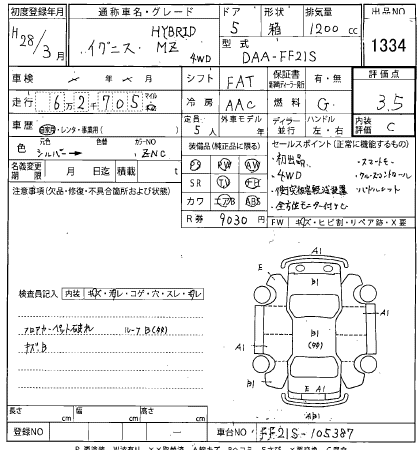 初度登録年月 通称車名・グレード ドア 形状 排気量 出品NO
H28/3月 イグニス HYBRID MZ 4WD 5 箱 1200cc 1334
型式 DAA-FF21S
車検 × 年 × 月 シフト FAT 保証書 有・無 評価点
走行 6万2705 マイル Km 冷房 AAC 燃料 G 3.5
車歴 自家用・レンタ・事業用( ) 定員 5人 外車モデル 年 ディーラー 並行 ハンドル 左・右 内装 C
色 元色 シルバー → 色替 カラーNO ZNC 装備品(純正品に限る) セールスポイント(正常に機能するもの)
名義変更期限 月 日迄 積載 t PS PW AW
注意事項(欠品・修復・不具合箇所および状態) SR TV ナビ
カワ エアB ABS
R券 9030円
・初出品
・4WD
・衝突被害軽減装置
・全方位モニター付ナビ
・スマートキー
・クルーズコントロール
・パドルシフト
FW キズ・ヒビ割・リペア跡・X要
検査員記入 内装 キズ・汚レ・コゲ・穴・スレ・ダレ
フロアカーペット破れ ルーフB(中)
キズ・B
A1
E
B1
A1
B1
(中)
B1
E A1
AB1
長さ cm 幅 cm 高さ cm
登録NO ー 車台NO FF21S-105387